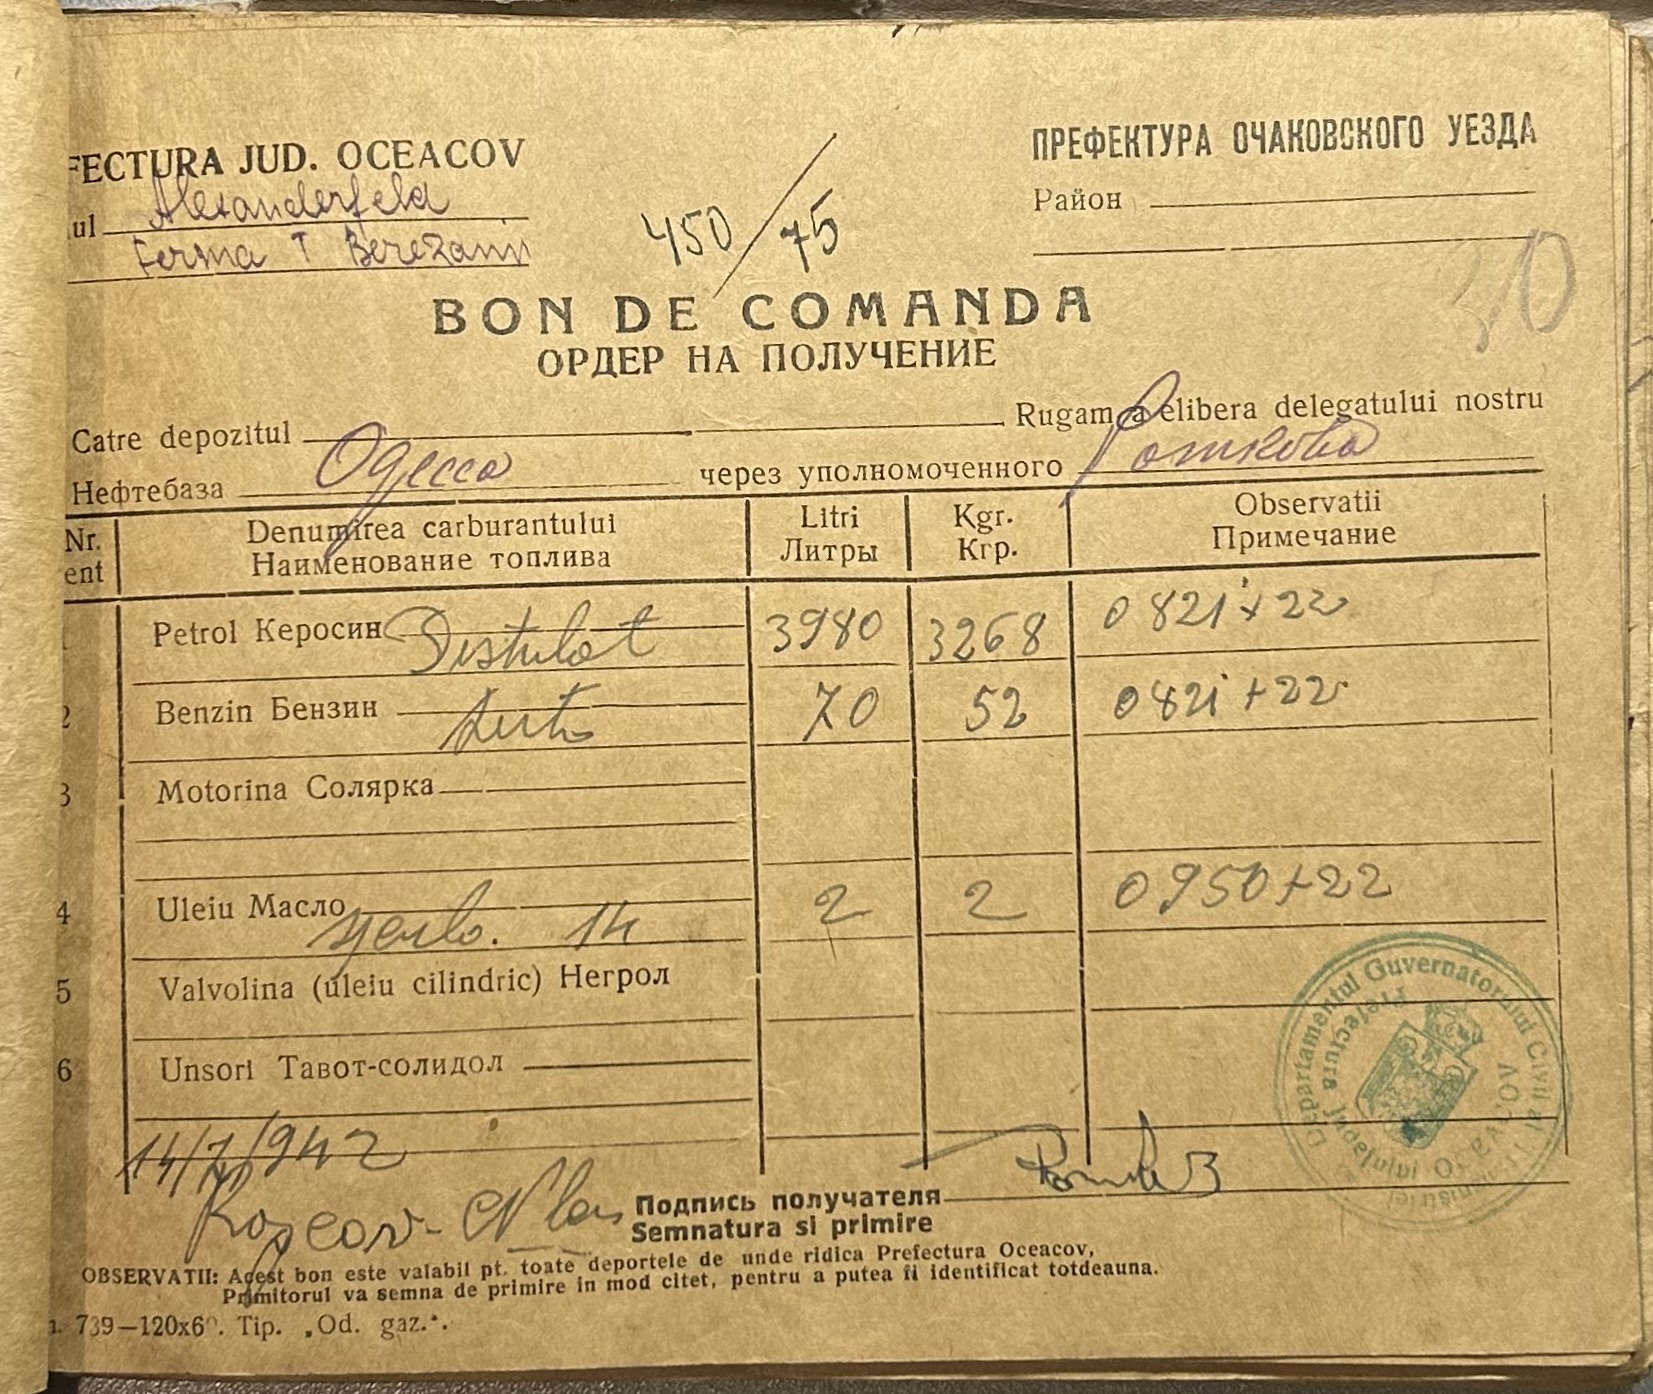 FECTURA JUD. OCEACOV
ПРЕФЕКТУРА ОЧАКОВСКОГО УЕЗДА
ul Alexanderfeld
Район
Ferma T Berezani
450/75
30
BON DE COMANDA
ОРДЕР НА ПОЛУЧЕНИЕ
Catre depozitul Rugam a elibera delegatului nostru
Нефтебаза Одесса через уполномоченного Роткова
Nr. Denumirea carburantului Litri Kgr. Observatii
ent Наименование топлива Литры Кгр. Примечание
Petrol Керосин Distilat 3980 3268 0821+22
2 Benzin Бензин 70 52 0821+22
3 Motorina Солярка
4 Uleiu Масло 14 2 2 0950+22
5 Valvolina (uleiu cilindric) Негрол
6 Unsori Тавот-солидол
Departamentul Guvernatorului Civil al Transnistriei
Prefectura Judeţului Oceacov
14/7/942
Подпись получателя
Semnatura si primire
OBSERVATII: Acest bon este valabil pt. toate deportele de unde ridica Prefectura Oceacov,
Primitorul va semna de primire in mod citet, pentru a putea fi identificat totdeauna.
739—120x6 . Tip. „Od. gaz.".